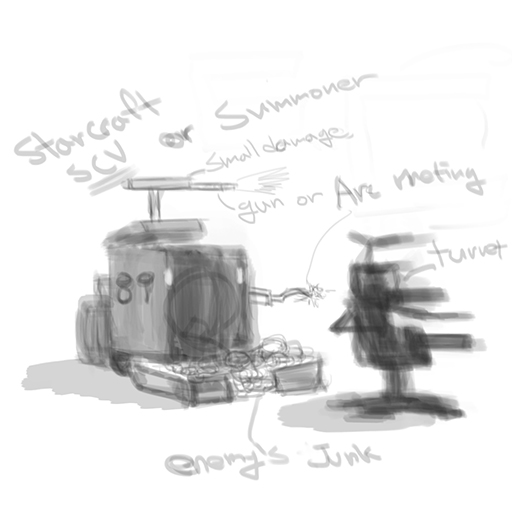 Starcraft or Summoner
SCV
small damage
gun or Arc melting
turret
87
enemy's Junk